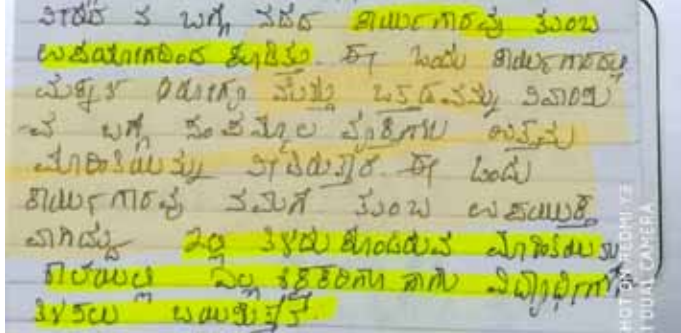 ನಡೆದ ಕಾರ್ಯಗಾರವು ತುಂಬ
ಉಪಯೋಗದಿಂದ ಕೂಡಿತ್ತು. ಈ ಒಂದು ಕಾರ್ಯಗಾರದಲ್ಲಿ
ಮತ್ತು ಒತ್ತಡವನ್ನು ನಿವಾರಿಸು
-ವ ಬಗ್ಗೆ ಸಂಪನ್ಮೂಲ ವ್ಯಕ್ತಿಗಳು ಉತ್ತಮ
ಮಾಹಿತಿಯನ್ನು ನೀಡಿರುತ್ತಾರೆ. ಈ ಒಂದು
ಕಾರ್ಯಗಾರವು ನಮಗೆ ತುಂಬ ಉಪಯುಕ್ತ
ವಾಗಿದ್ದು ಇಲ್ಲಿ ತಿಳಿದುಕೊಂಡಿರುವ ಮಾಹಿತಿಯನ್ನು
ಶಾಲೆಯಲ್ಲಿ ಎಲ್ಲ ಶಿಕ್ಷಕರಿಗೂ ಹಾಗು ವಿದ್ಯಾರ್ಥಿಗಳಿಗೆ
ತಿಳಿಸಲು ಬಯಸುತ್ತೇನೆ
SHOT ON REDMI Y3
AI DUAL CAMERA